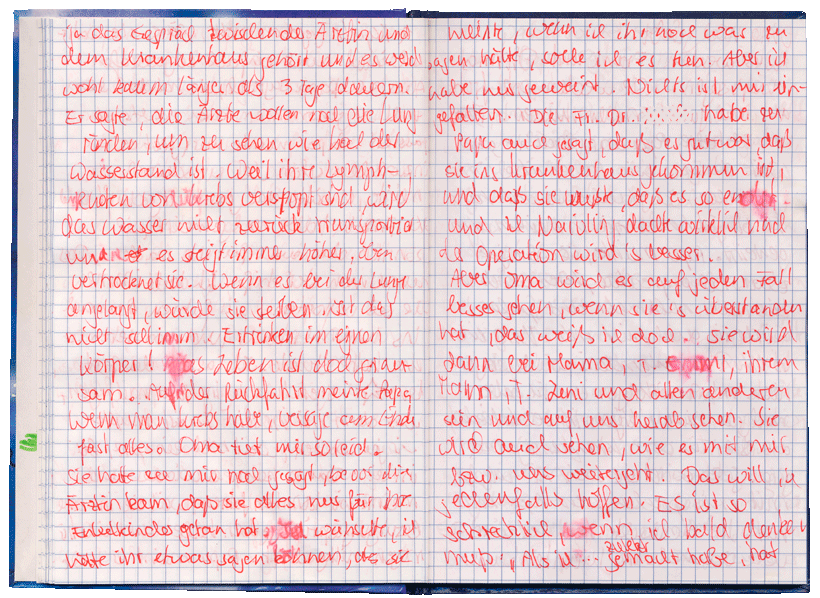 ja das Gespräch zwischen der Ärztin und
dem Krankenhaus gehört und es werde
wohl kaum länger als 3 Tage dauern.
Er sagte, die Ärzte wollen noch die Lunge
röntgen, um zu sehen wie hoch der
Wasserstand ist. Weil ihre Lymph-
knoten von Krebs verstopft sind, wird
das Wasser nicht zurück transportiert
und es steigt immer höher. Oben
vertrocknet sie. Wenn es bei der Lunge
angelangt, würde sie sterben. Ist das
nicht schlimm. Ertrinken im eignen
Körper! Das Leben ist doch grau-
sam. Auf der Rückfahrt meinte Papa,
wenn man Krebs habe, versage am Ende
fast alles. Oma tut mir so leid.
Sie hatte zu mir noch gesagt, bevor die
Ärztin kam, daß sie alles nur für ihre
Enkelkinder getan hat. Ich wünschte, ich
hätte ihr etwas sagen können, als sie
meinte, wenn ich ihr noch was zu
sagen hätte, solle ich es tun. Aber ich
habe nur geweint. Nichts ist mir ein-
gefallen. Die Fr. Dr. habe zu
Papa auch gesagt, daß es gut war, daß
sie ins Krankenhaus gekommen ist,
und daß sie wußte, daß es so
und ich Naivlin, dachte wirklich nach
der Operation wird's besser.
Aber Oma wird es auf jeden Fall
besser gehen, wenn sie's überstanden
hat, das weiß ich doch. Sie wird
dann bei Mama, T. ihrem
Mann, T. Leni und allen anderen
sein und auf uns herab sehen. Sie
wird auch sehen, wie es mit mir
bzw. uns weitergeht. Das will ich
jedenfalls hoffen. Es ist so
schrecklich, wenn ich bald denken
muß. „Als ich ... zuletzt gemalt habe, hat